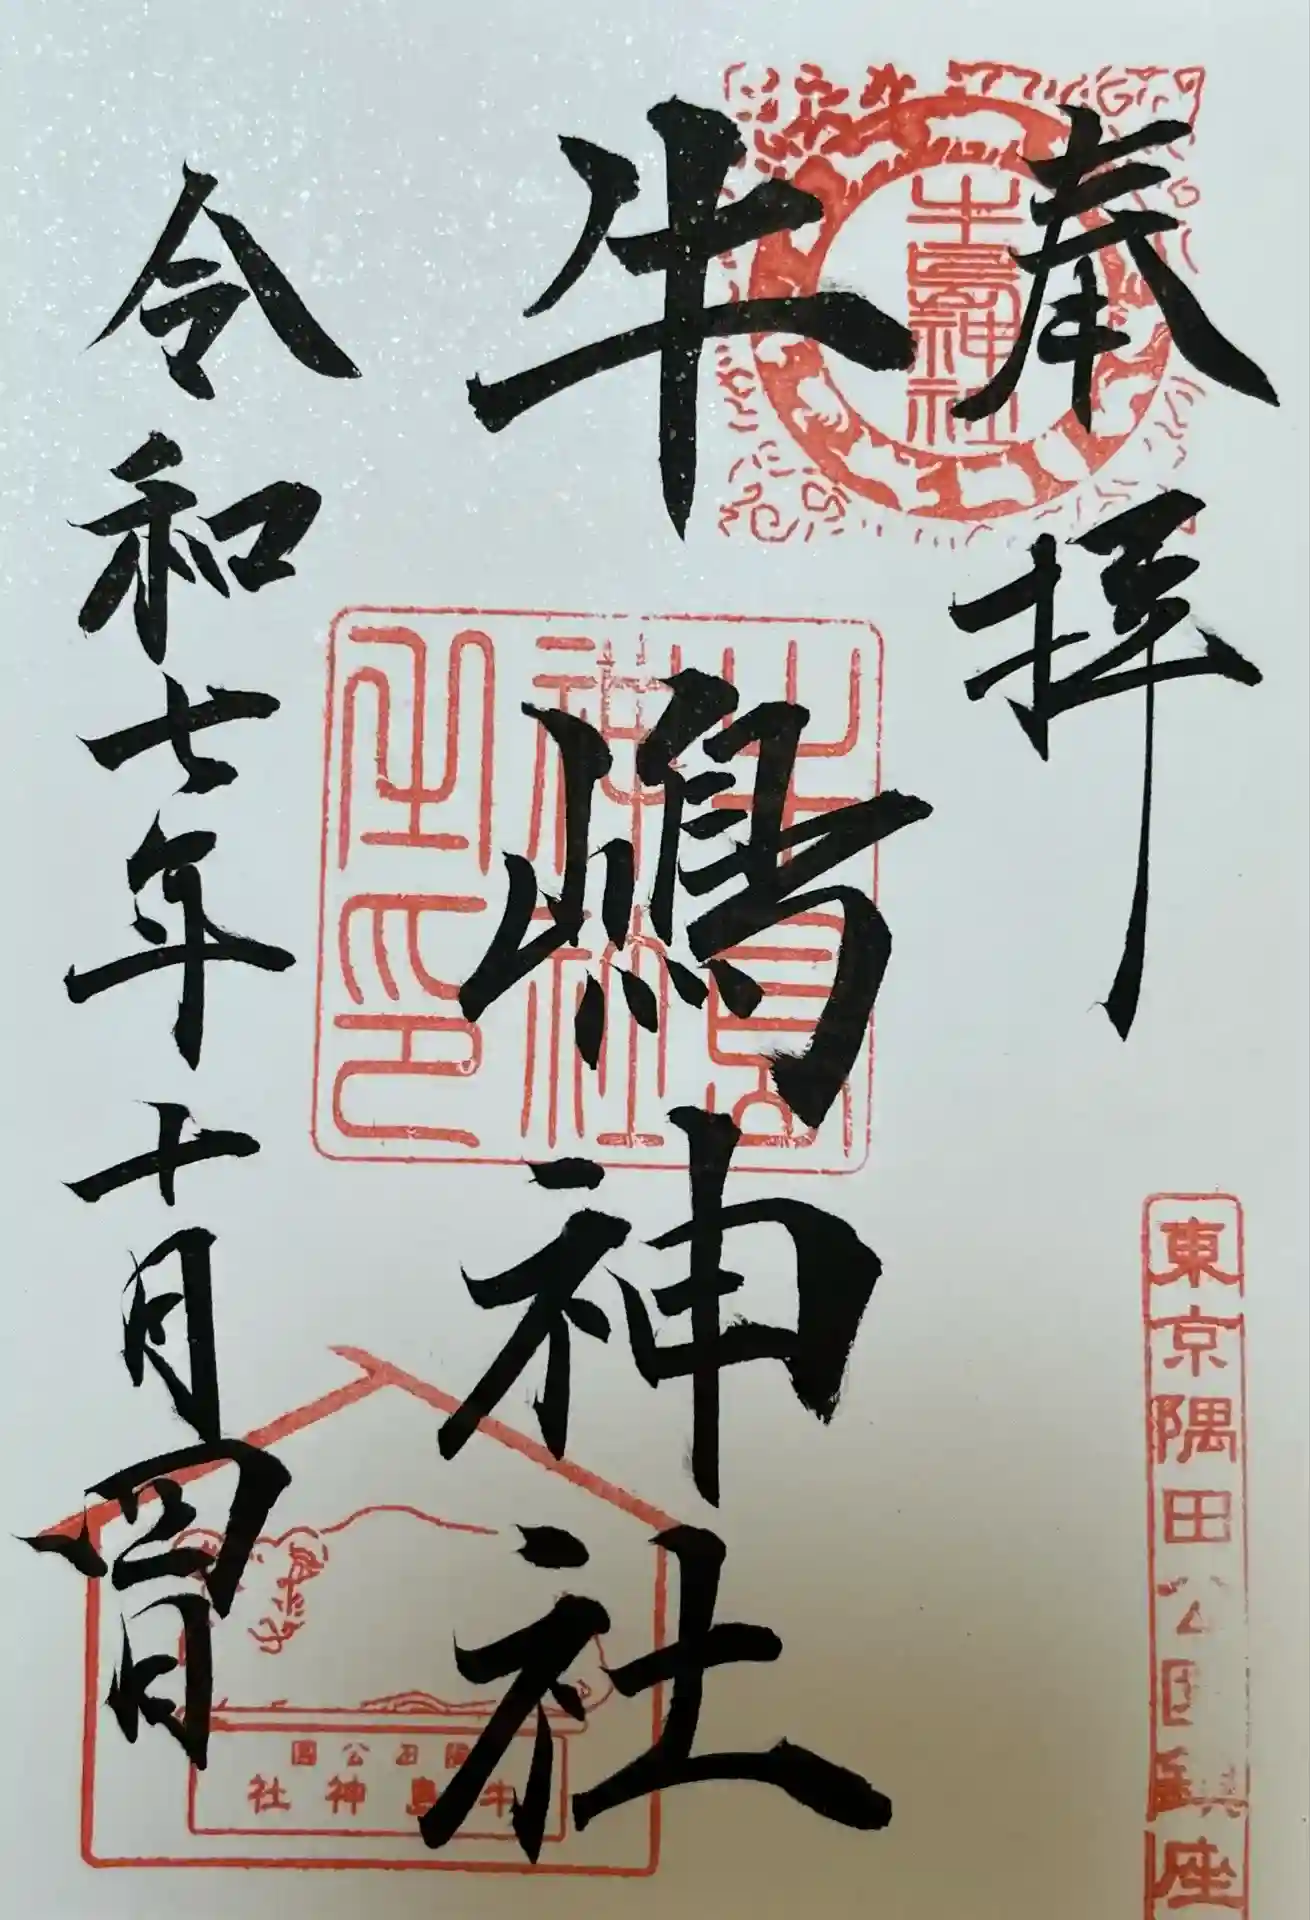 奉拝
東京隅田公園鎮座
牛嶋神社
令和七年十月四日
牛島神社
牛島神社之印
隅田公園
牛島神社